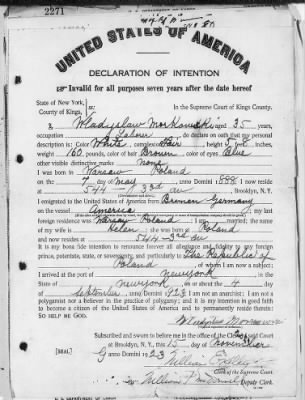 2271
UNITED STATES OF AMERICA
DECLARATION OF INTENTION
Invalid for all purposes seven years after the date hereof
State of New York,
County of Kings, ss: In the Supreme Court of Kings County.
I, Wladyslaw aged 35 years,
occupation Laborer do declare on oath that my personal
description is: Color White, complexion Fair, height 5 feet inches,
weight 160 pounds, color of hair Brown, color of eyes Blue
other visible distinctive marks none
I was born in Warsaw Poland
on the 7 day of May, anno Domini 1888; I now reside
at 544 - 3rd av Brooklyn, N.Y.
I emigrated to the United States of America from Bremen Germany
on the vessel America; my last
foreign residence was Warsaw Poland; I am married; the name
of my wife is Helen; she was born in Poland
and now resides at 544 - 3rd av
It is my bona fide intention to renounce forever all allegiance and fidelity to any foreign
prince, potentate, state, or sovereignty, and particularly to The Republic of
Poland of whom I am now a subject;
I arrived at the port of New York, in the
State of New York, on or about the 4 day
of September, anno Domini 1923; I am not an anarchist; I am not a
polygamist nor a believer in the practice of polygamy; and it is my intention in good faith
to become a citizen of the United States of America and to permanently reside therein:
SO HELP ME GOD.
Subscribed and sworn to before me in the office of the Clerk of said Court
at Brooklyn, N.Y., this 15 day of November
[SEAL] anno Domini 1923
William
Clerk.
By William Deputy Clerk.